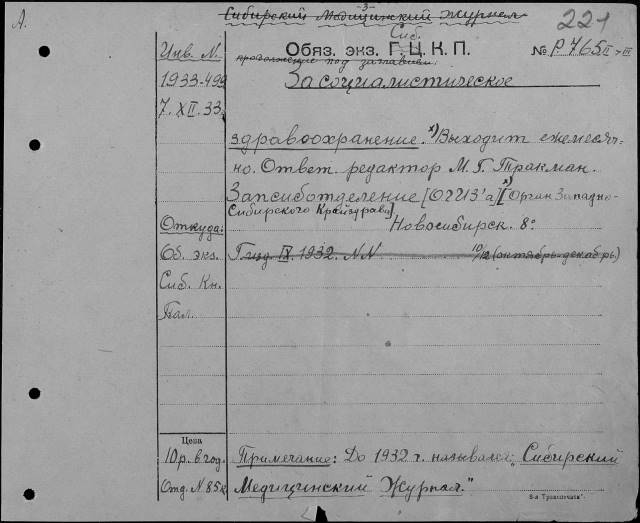 А.
-3-
Сибирский Медицинский Журнал
221
Сиб.
Обяз. экз. Г.Ц.К.П.
№ Р 765 II-III
продолжение под заглавием:
Инв. N.
1933-499
7. XII. 33.
За социалистическое
здравоохранение. х) Выходит ежемесяч-
но. Ответ. редактор М. Г. Тракман.
Запсиботделение [ОГИЗ'а] х) [Орган Западно-
Сибирского Крайздрава]
Новосибирск. 8°
Откуда:
Об. экз.
Сиб. Кн.
Пал.
Г. изд. IX. 1932. NN 10/12 (октябрь-декабрь)
Цена
10 р. в год.
Отд. N 85к
Примечание: До 1932 г. назывался: "Сибирский
Медицинский Журнал."